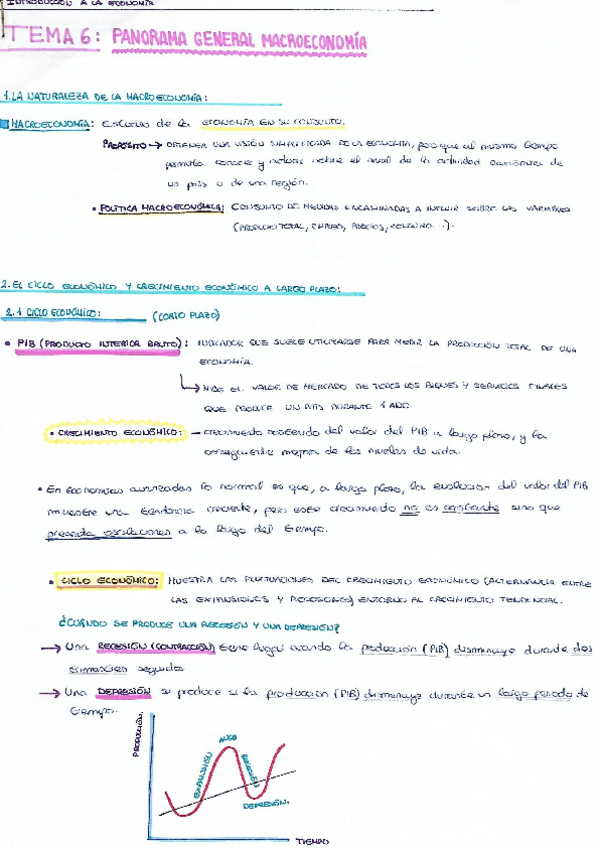 INTRODUCCIÓN A LA ECONOMÍA
TEMA 6: PANORAMA GENERAL MACROECONOMÍA
1. LA NATURALEZA DE LA MACROECONOMÍA:
MACROECONOMÍA: ESTUDIO DE LA ECONOMÍA EN SU CONJUNTO.
PROPÓSITO → OBTENER UNA VISIÓN SIMPLIFICADA DE LA ECONOMÍA, pero que al mismo tiempo
permita conocer y actuar sobre el nivel de la actividad económica de
un país o de una región.
• POLÍTICA MACROECONÓMICA: CONJUNTO DE MEDIDAS ENCAMINADAS A INFLUIR SOBRE LAS VARIABLES
(PRODUCTO TOTAL, EMPLEO, PRECIOS, CONSUMO...).
2. EL CICLO ECONÓMICO Y CRECIMIENTO ECONÓMICO A LARGO PLAZO:
2.1 CICLO ECONÓMICO: (CORTO PLAZO)
• PIB (PRODUCTO INTERIOR BRUTO): INDICADOR QUE SUELE UTILIZARSE PARA MEDIR LA PRODUCCIÓN TOTAL DE UNA
ECONOMÍA.
↳ MIDE EL VALOR DE MERCADO DE TODOS LOS BIENES Y SERVICIOS FINALES
QUE PRODUCE UN PAÍS DURANTE 1 AÑO.
• CRECIMIENTO ECONÓMICO: - crecimiento sostenido del valor del PIB a largo plazo, y la
consiguiente mejora de los niveles de vida.
• En economías avanzadas lo normal es que, a largo plazo, la evolución del valor del PIB
muestre una tendencia creciente, pero este crecimiento no es constante sino que
presenta oscilaciones a lo largo del tiempo.
• CICLO ECONÓMICO: MUESTRA LAS FLUCTUACIONES DEL CRECIMIENTO ECONÓMICO (ALTERNANCIA ENTRE
LAS EXPANSIONES Y RECESIONES) ENTORNO AL CRECIMIENTO TENDENCIAL.
¿CUÁNDO SE PRODUCE UNA RECESIÓN Y UNA DEPRESIÓN?
→ Una RECESIÓN (CONTRACCIÓN) tiene lugar cuando la producción (PIB) disminuye durante dos
trimestres seguidos
→ Una DEPRESIÓN si produce si la producción (PIB) disminuye durante un largo periodo de
tiempo.
PRODUCCIÓN.
EXPANSIÓN
AUGE
RECESIÓN
DEPRESIÓN.
TIEMPO